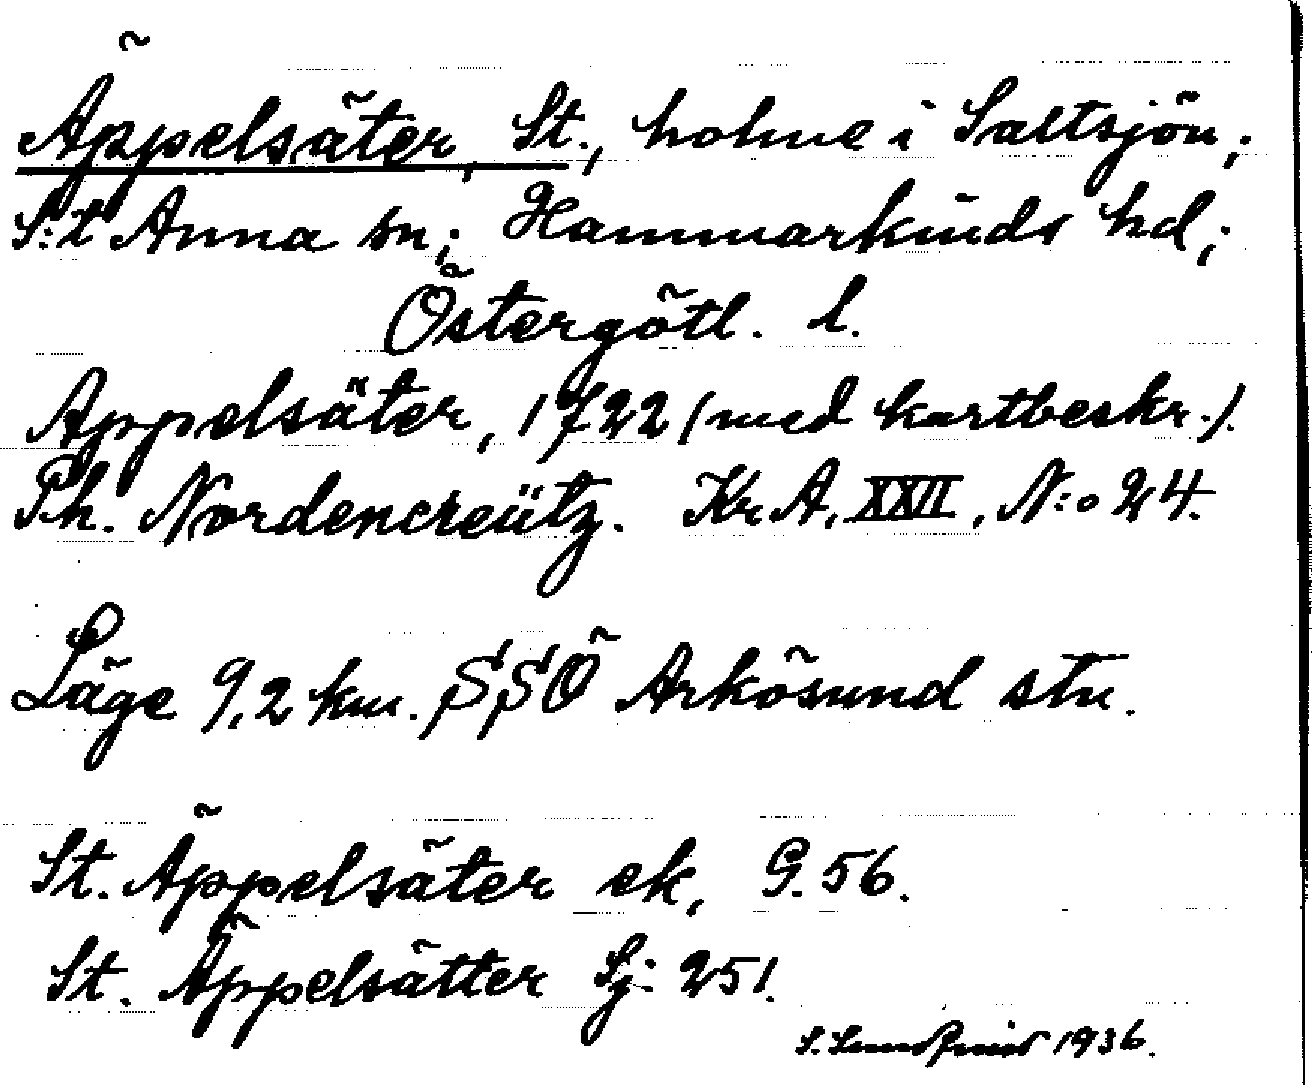 Äppelsäter, St., holme i Saltsjön;
S:t Anna sn; Hammarkinds hd;
Östergötl. l.
Appelsäter, 1722 (med kartbeskr.).
Ph. Nordencreütz. Kr. A. XXVII, N:o 24.
Läge 9,2 km. SSÖ Arkösund stn.
St. Äppelsäter ek, G. 56.
St. Äppelsätter Sj: 251.
S. 1936.